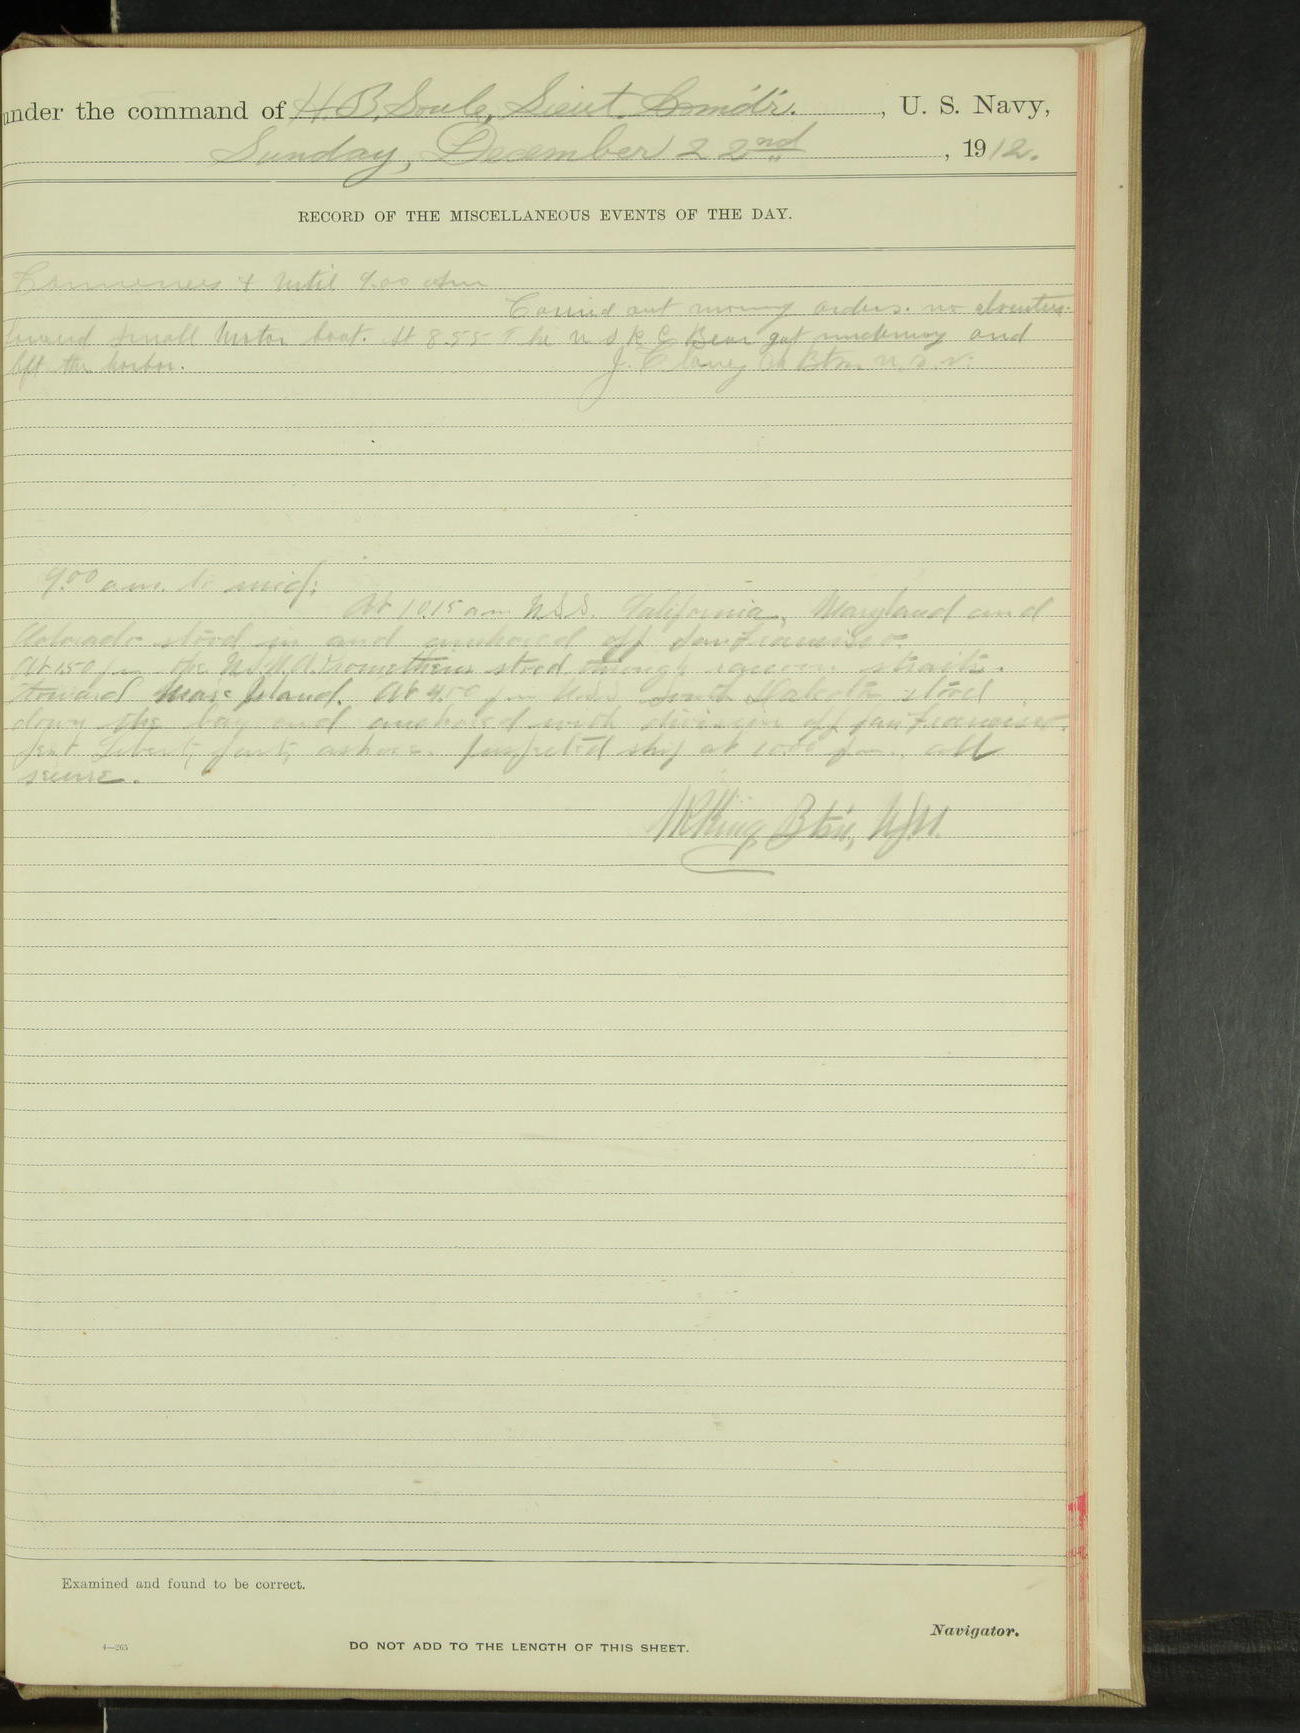 under the command of H. B. Soule, Lieut. Comd'r. , U. S. Navy,
Sunday, December 22nd , 1912.
RECORD OF THE MISCELLANEOUS EVENTS OF THE DAY.
Commences & until 9.00 am
Carried out morning orders. no absentees.
small motor boat. At 8.55 The U S R C Bear got underway and
left the harbor. J. Btsn U.S.N.
9.00 a.m. to mid:
At 10.15 a m U.S.S. California, Maryland and
Colorado stood in and anchored off San Francisco.
At 1.50 p m the U.S.S. Prometheus stood through raccoon straits
toward Mare Island. At 4.00 p m U.S.S. South Dakota stood
down the bay and anchored with division off San Francisco.
Sent liberty party ashore. Inspected ship at 10.00 p m. all
secure.
King Btsn, U.S.N.
Examined and found to be correct.
Navigator.
4—265
DO NOT ADD TO THE LENGTH OF THIS SHEET.